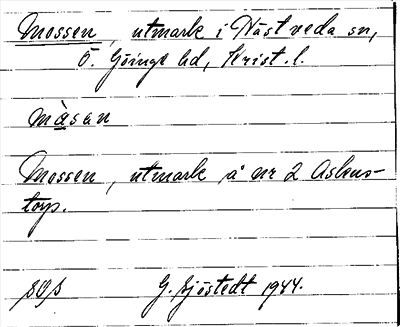 Mossen, utmark i Nästveda sn,
Ö. Göinge hd, Krist. l.
màsan
Mossen, utmark å nr 2 Askus-
torp.
G. Sjöstedt 1944.